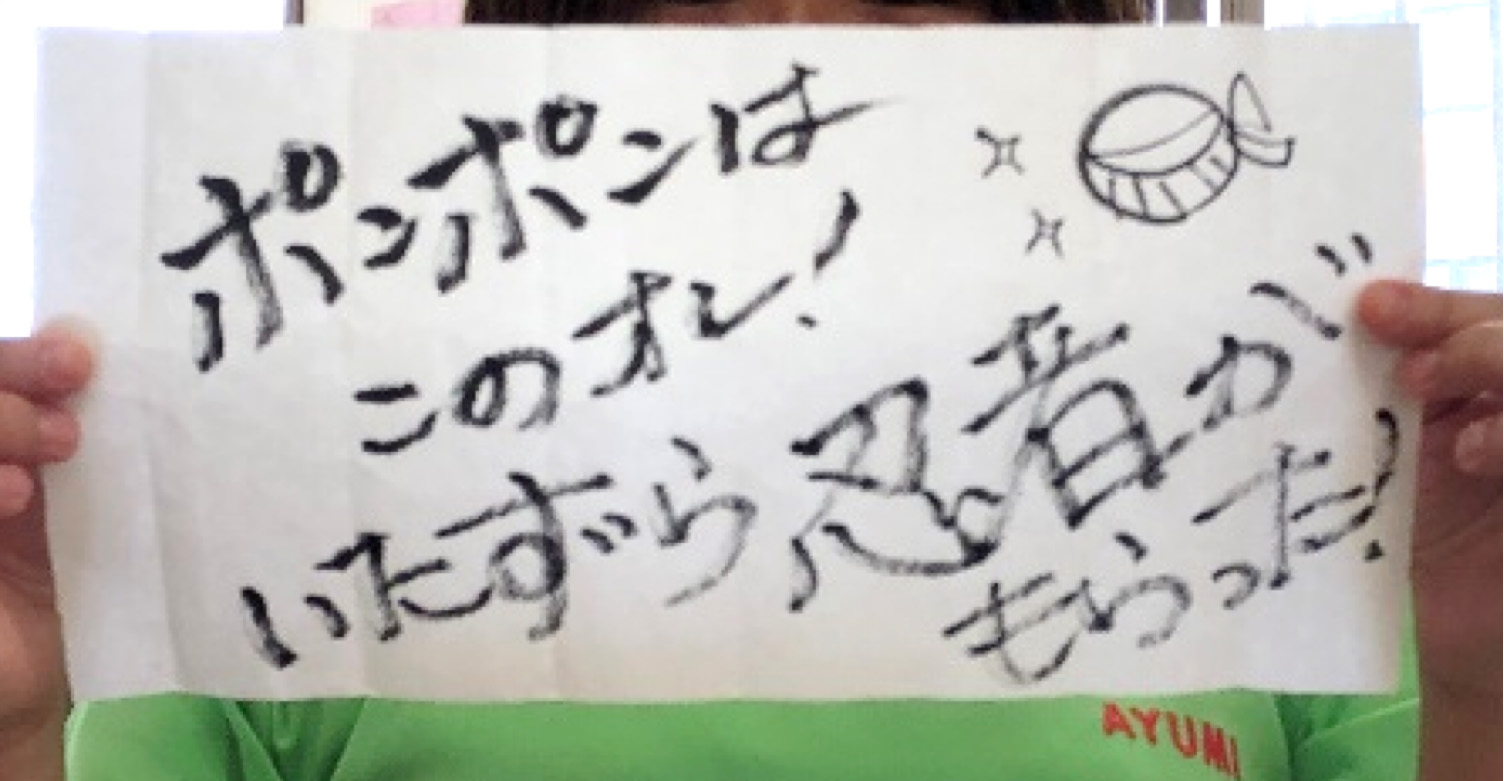 ポンポンは
このオレ!
いたずら忍者が
もらった!
AYUMI